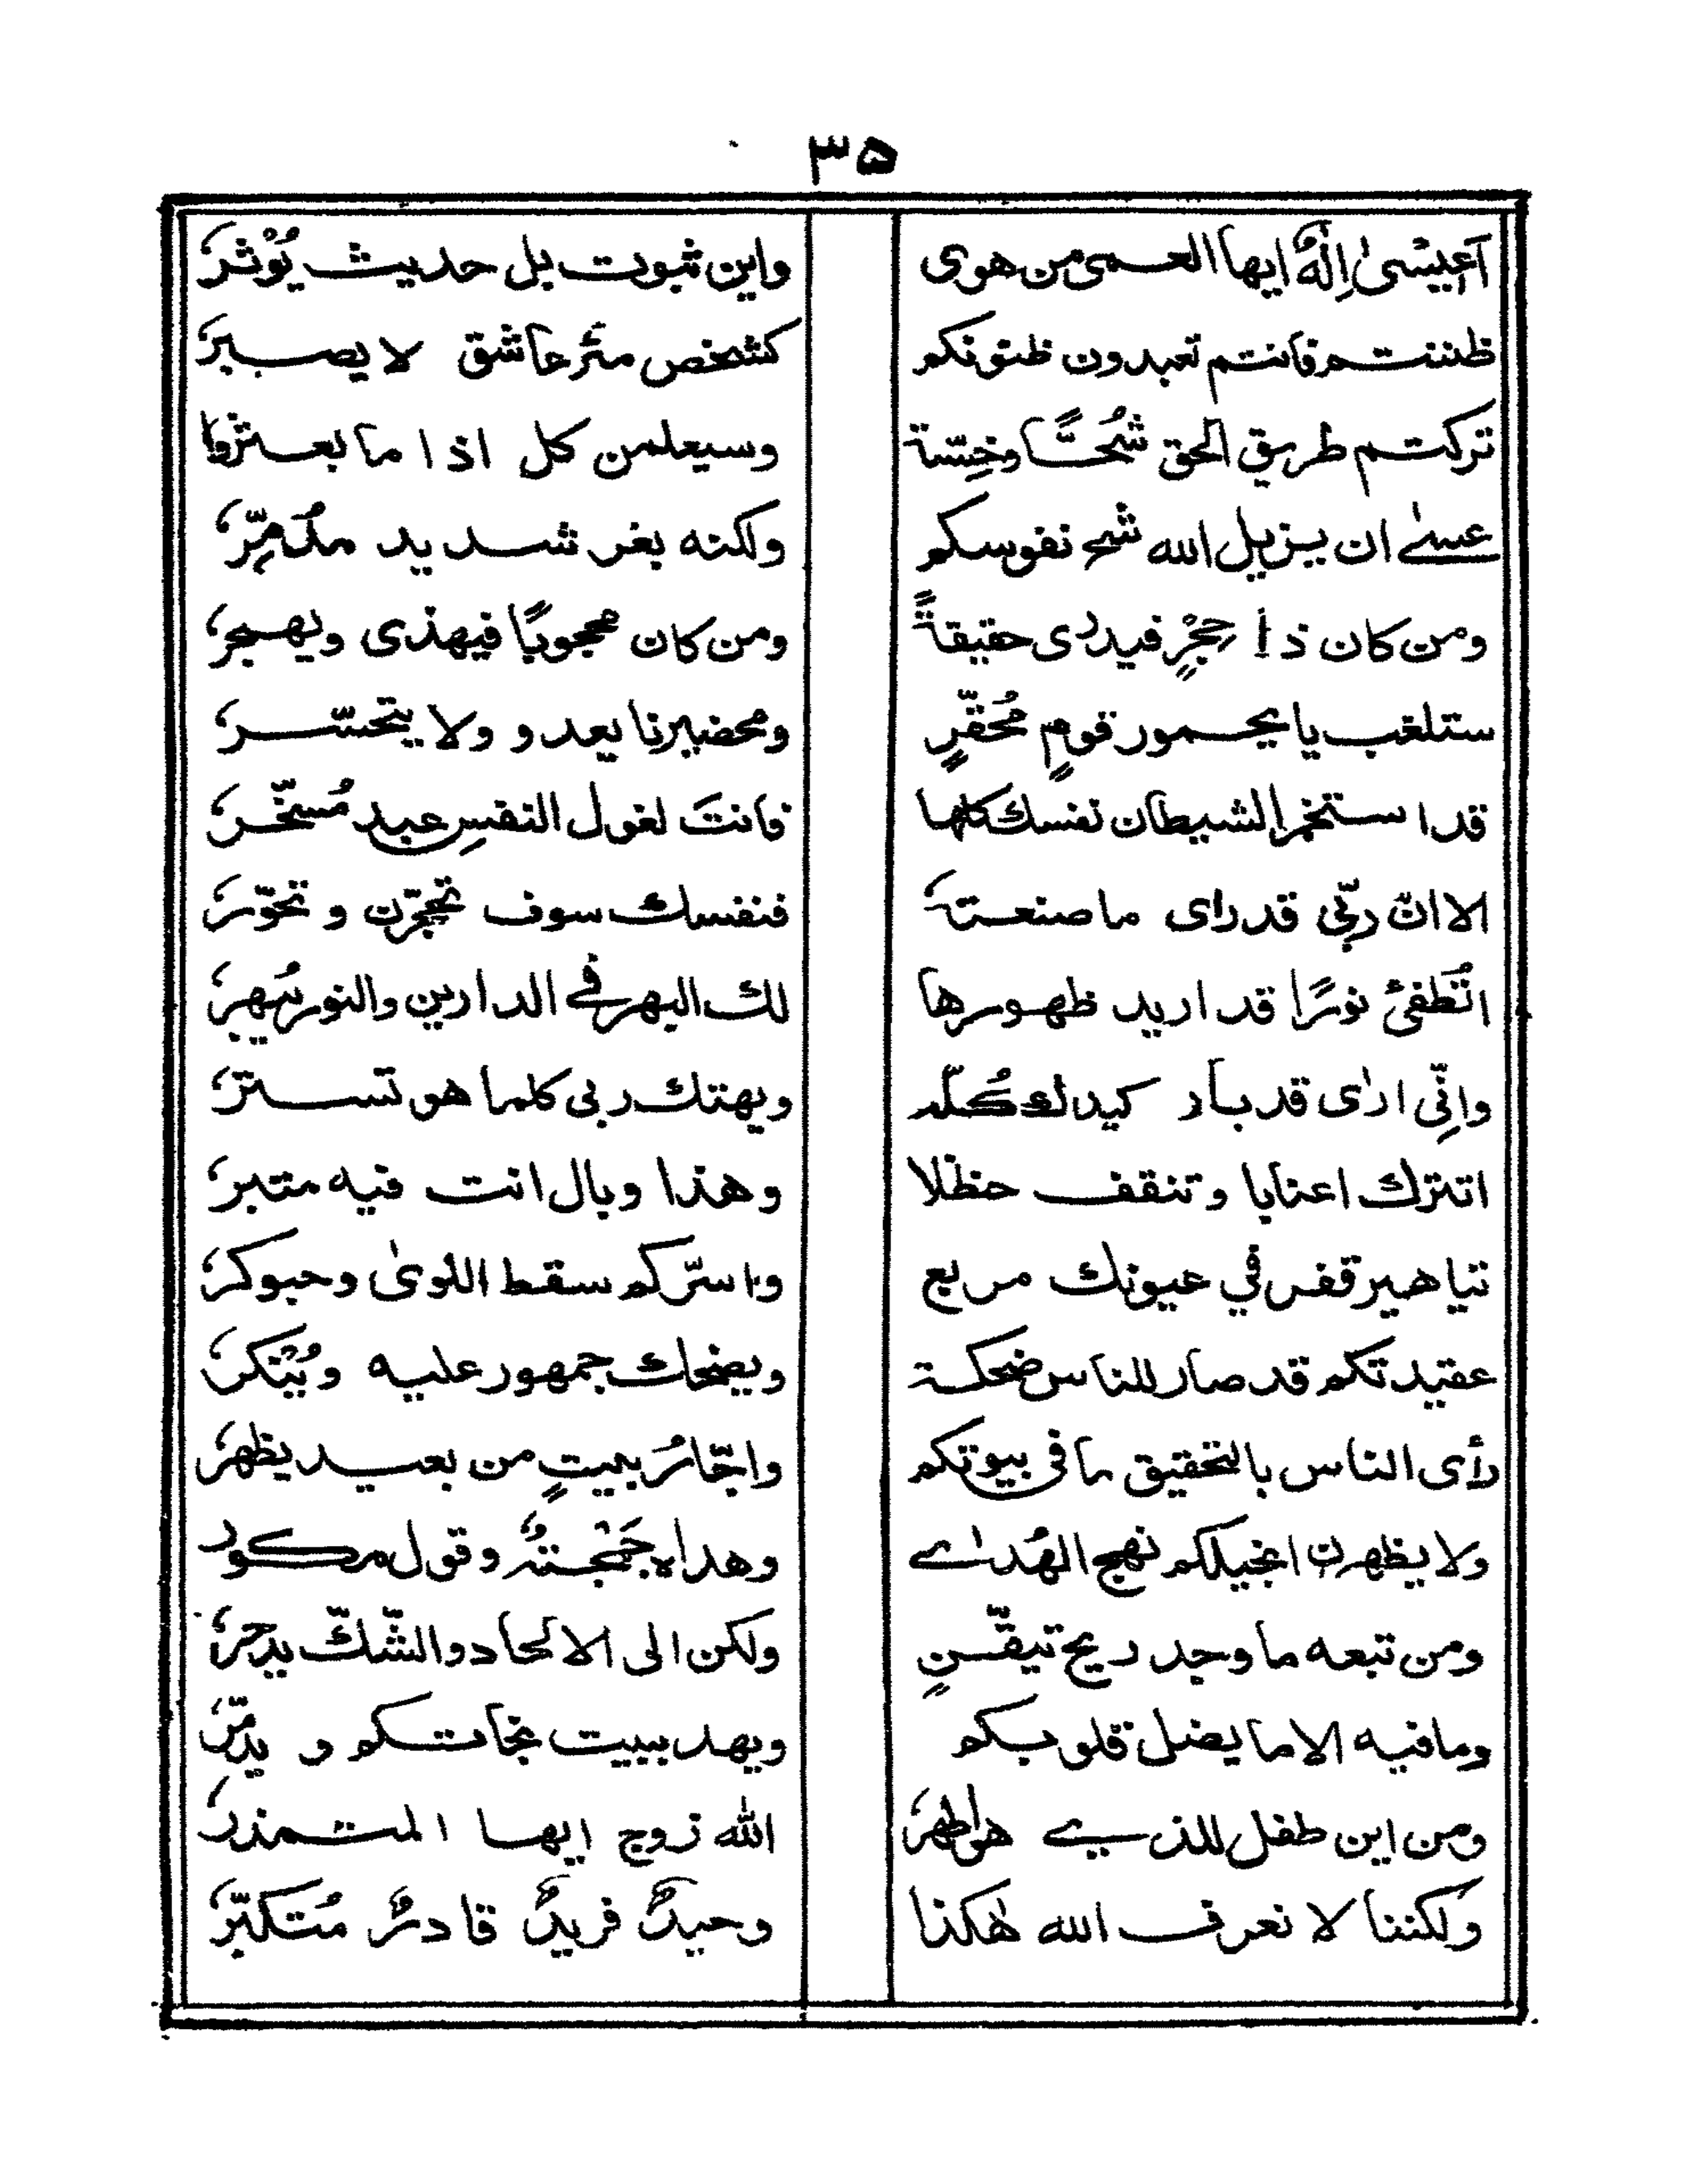 ۳۵
أعيسٰى اِلٰهٌ ايها العمى من هوى واين ثبوت بل حديث يُؤْثر
ظننتم فانتم تعبدون ظنونكم كشخص متر عاشق لا يصبر
تركتم طريق الحق شُحًّا وخِسّة وسيعلمن كل اذا ما بعثروا
عسٰى ان يزيل الله شح نفوسكم ولكنه بغر شديد مدمِّر
ومن كان ذا حِجْرٍ فيدرى حقيقةً ومن كان محجوبًا فيهذى ويهجر
ستلغب يا يحمور قومٍ مُحقّرٍ ومحضيرنا يعدو ولا يتحسّر
قد استخمر الشيطان نفسك كلها فانتَ لغول النفسِ عبد مُسخّر
الا انّ ربّي قد راى ما صنعته فنفسك سوف تحجرّن وتخوّر
اتُطفئ نورًا قد اريد ظهورها لك البهر فى الدارين والنور يُبهر
وانّي ارٰى قد بار كيدك كُلّه ويهتك ربى كلما هو تستر
اتترك اعنابا وتنقف حنظلا وهذا وبال انت فيه متبر
تياهير قفر في عيونك مربع واسرّكم سقط اللوىٰ وحبوكر
عقيدتكم قد صار للناس ضحكة ويضحك جمهور عليه ويُنْكر
رأى الناس بالتحقيق ما فى بيوتكم واجّار بيتٍ من بعيد يظهر
ولا يظهرن انجيلكم نهج الهُدٰى وهداه جمجته وقول مكور
ومن تبعه ما وجد ريح تيقّنٍ ولكن الى الالحاد والشّكّ يدحر
وما فيه الا ما يضل قلوبكم ويهد ببيت نجاتكم و يدمّر
ومن اين طفل للذى هو اطهر الله زوج ايها المتمذر
ولكننا لا نعرف الله هٰكذا وحيدٌ فريدٌ قادرٌ مُتكبّر